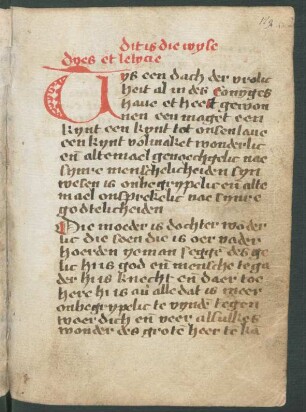 Dit is die wyse
dyes et letycie
Uys een dach der vrolic
heit al in des conynges
haue et heeft gewon
nen een maget een
kynt een kynt tot onsen laue
een kynt volmaket wonderlic
en̄ altemael genoechgelic nae
synre menscheliclheiden syn
wesen is onbegrypelic en̄ alte
mael onsprekelic nae synre
godtelicheiden
Die moeder is dochter woder
lic die soen die is oer vader
hoerden yeman segge des ge
lic hi is god en̄ mensche tega
der hi is knecht en̄ daer toe
here hi is au̅ alle dat is weer
onbegrypelic te vynde tegen
woerdich en̄ veer alsulkes
wonder des grote heer te ka